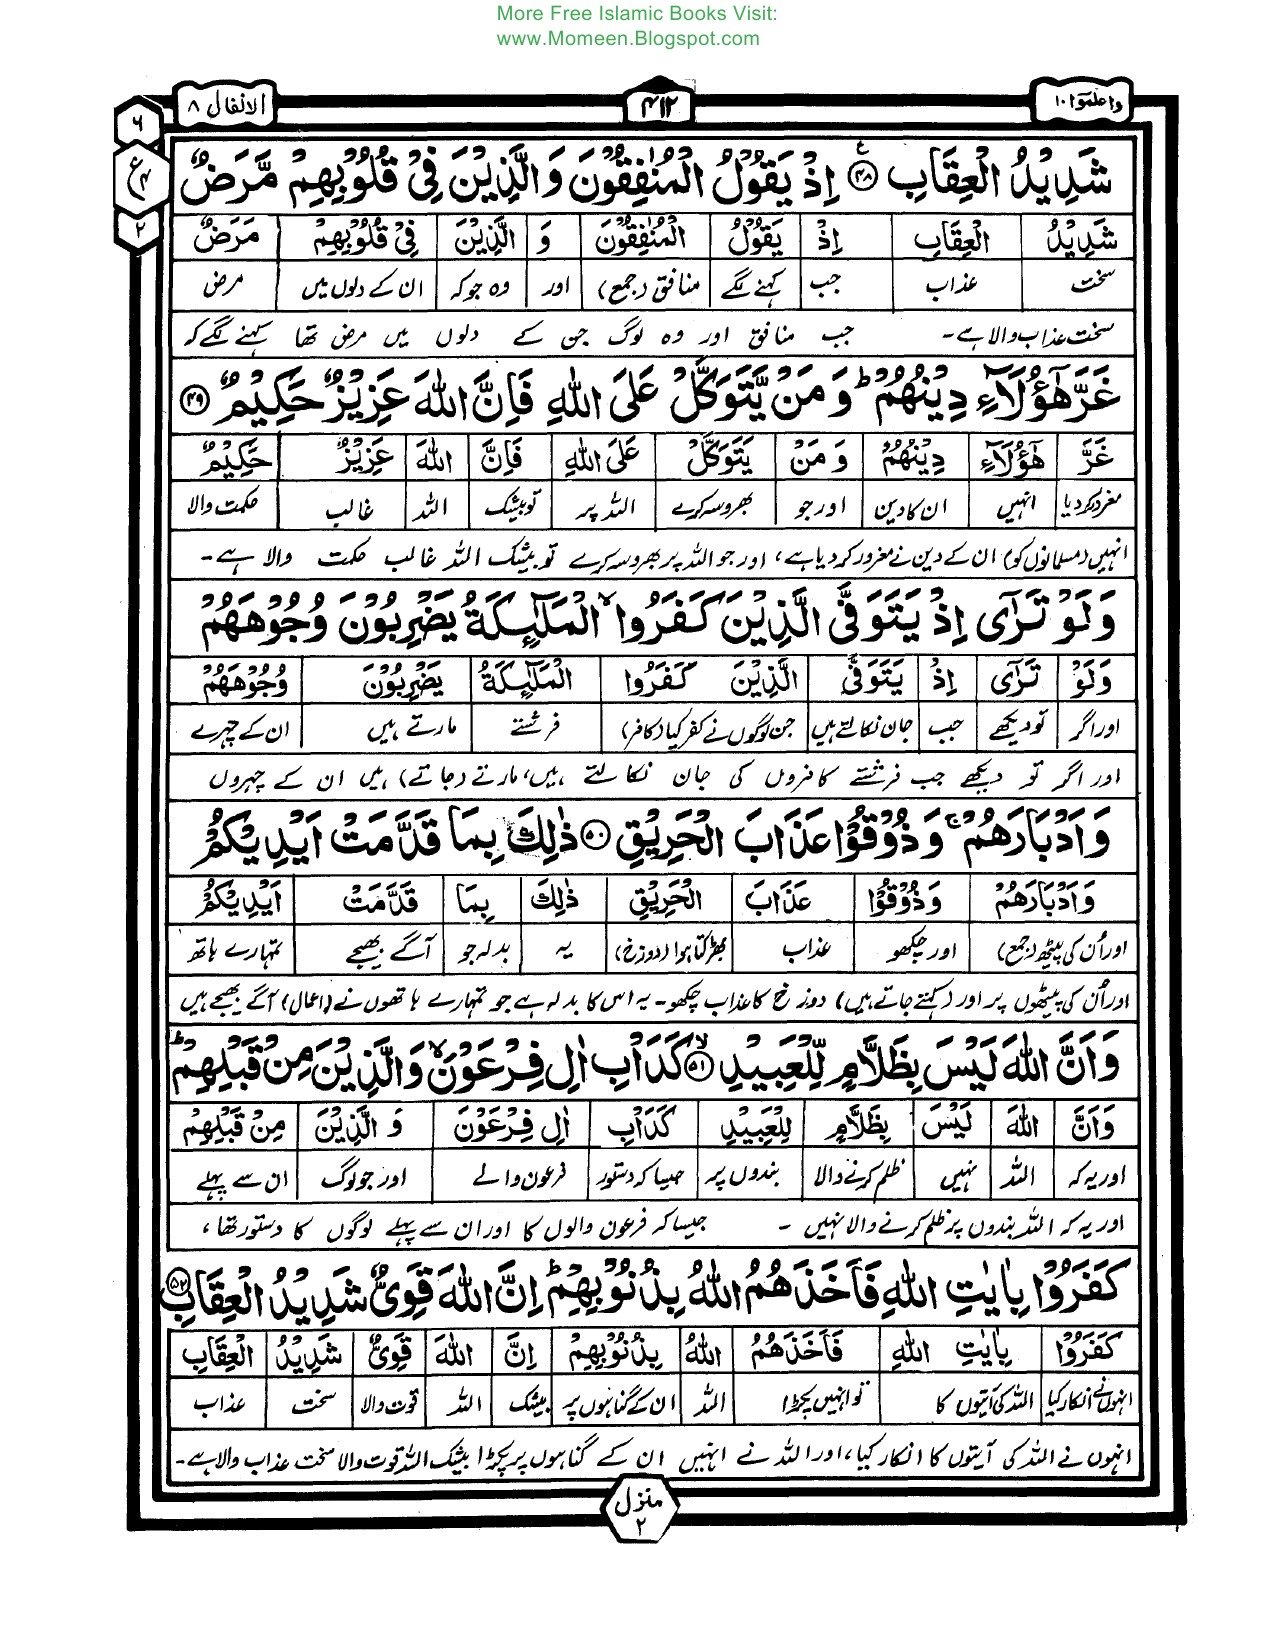 More Free Islamic Books Visit:
www.Momeen.Blogspot.com
واعلموا ١٠
٤١٢
الانفال ٨
٦
ع
٤
٢
شَدِيْدُ الْعِقَابِ ۝٤٨ اِذْ يَقُوْلُ الْمُنٰفِقُوْنَ وَالَّذِيْنَ فِيْ قُلُوْبِهِمْ مَّرَضٌ
شَدِيْدُ الْعِقَابِ اِذْ يَقُوْلُ الْمُنٰفِقُوْنَ وَ الَّذِيْنَ فِيْ قُلُوْبِهِمْ مَرَضٌ
سخت عذاب جب کہنے لگے منافق (جمع) اور وہ جو کہ ان کے دلوں میں مرض
سخت عذاب والا ہے۔ جب منافق اور وہ لوگ جن کے دلوں میں مرض تھا کہنے لگے کہ
غَرَّ هٰٓؤُلَآءِ دِيْنُهُمْ ؕ وَ مَنْ يَّتَوَكَّلْ عَلَى اللّٰهِ فَاِنَّ اللّٰهَ عَزِيْزٌ حَكِيْمٌ ۝٤٩
غَرَّ هٰٓؤُلَآءِ دِيْنُهُمْ وَ مَنْ يَتَوَكَّلْ عَلَى اللّٰهِ فَاِنَّ اللّٰهَ عَزِيْزٌ حَكِيْمٌ
مغرور کر دیا انہیں ان کا دین اور جو بھروسہ کرے اللہ پر تو بیشک اللہ غالب حکمت والا
انہیں (مسلمانوں کو) ان کے دین نے مغرور کر دیا ہے، اور جو اللہ پر بھروسہ کرے تو بیشک اللہ غالب حکمت والا ہے۔
وَ لَوْ تَرٰٓى اِذْ يَتَوَفَّى الَّذِيْنَ كَفَرُوا ۙ الْمَلٰٓئِكَةُ يَضْرِبُوْنَ وُجُوْهَهُمْ
وَلَوْ تَرٰٓى اِذْ يَتَوَفَّى الَّذِيْنَ كَفَرُوا الْمَلٰٓئِكَةُ يَضْرِبُوْنَ وُجُوْهَهُمْ
اور اگر تو دیکھے جب جان نکالتے ہیں جن لوگوں نے کفر کیا (کافر) فرشتے مارتے ہیں ان کے چہرے
اور اگر تو دیکھے جب فرشتے کافروں کی جان نکالتے ہیں، مارتے (جاتے) ہیں ان کے چہروں
وَ اَدْبَارَهُمْ ۚ وَ ذُوْقُوْا عَذَابَ الْحَرِيْقِ ۝٥٠ ذٰلِكَ بِمَا قَدَّمَتْ اَيْدِيْكُمْ
وَ اَدْبَارَهُمْ وَ ذُوْقُوْا عَذَابَ الْحَرِيْقِ ذٰلِكَ بِمَا قَدَّمَتْ اَيْدِيْكُمْ
اور اُن کی پیٹھ (جمع) اور چکھو عذاب بھڑکتا ہوا (دوزخ) یہ بدلہ جو آگے بھیجے تمہارے ہاتھ
اور اُن کی پیٹھوں پر اور (کہتے جاتے ہیں) دوزخ کا عذاب چکھو۔ یہ اس کا بدلہ ہے جو تمہارے ہاتھوں نے (اعمال) آگے بھیجے ہیں
وَ اَنَّ اللّٰهَ لَيْسَ بِظَلَّامٍ لِّلْعَبِيْدِ ۝٥١ ۙ كَدَاْبِ اٰلِ فِرْعَوْنَ ۙ وَالَّذِيْنَ مِنْ قَبْلِهِمْ ؕ
وَ اَنَّ اللّٰهَ لَيْسَ بِظَلَّامٍ لِلْعَبِيْدِ كَدَاْبِ اٰلِ فِرْعَوْنَ وَ الَّذِيْنَ مِنْ قَبْلِهِمْ
اور یہ کہ اللہ نہیں ظلم کرنے والا بندوں پر جیسا کہ دستور فرعون والے اور جو لوگ ان سے پہلے
اور یہ کہ اللہ بندوں پر ظلم کرنے والا نہیں۔ جیسا کہ فرعون والوں کا اور ان سے پہلے لوگوں کا دستور تھا،
كَفَرُوْا بِاٰيٰتِ اللّٰهِ فَاَخَذَهُمُ اللّٰهُ بِذُنُوْبِهِمْ ؕ اِنَّ اللّٰهَ قَوِيٌّ شَدِيْدُ الْعِقَابِ ۝٥٢
كَفَرُوْا بِاٰيٰتِ اللّٰهِ فَاَخَذَهُمُ اللّٰهُ بِذُنُوْبِهِمْ اِنَّ اللّٰهَ قَوِيٌّ شَدِيْدُ الْعِقَابِ
انہوں نے انکار کیا اللہ کی آیتوں کا تو انہیں پکڑا اللہ ان کے گناہوں پر بیشک اللہ قوت والا سخت عذاب
انہوں نے اللہ کی آیتوں کا انکار کیا، اور اللہ نے انہیں ان کے گناہوں پر پکڑا بیشک اللہ قوت والا سخت عذاب والا ہے۔
منزل
٢